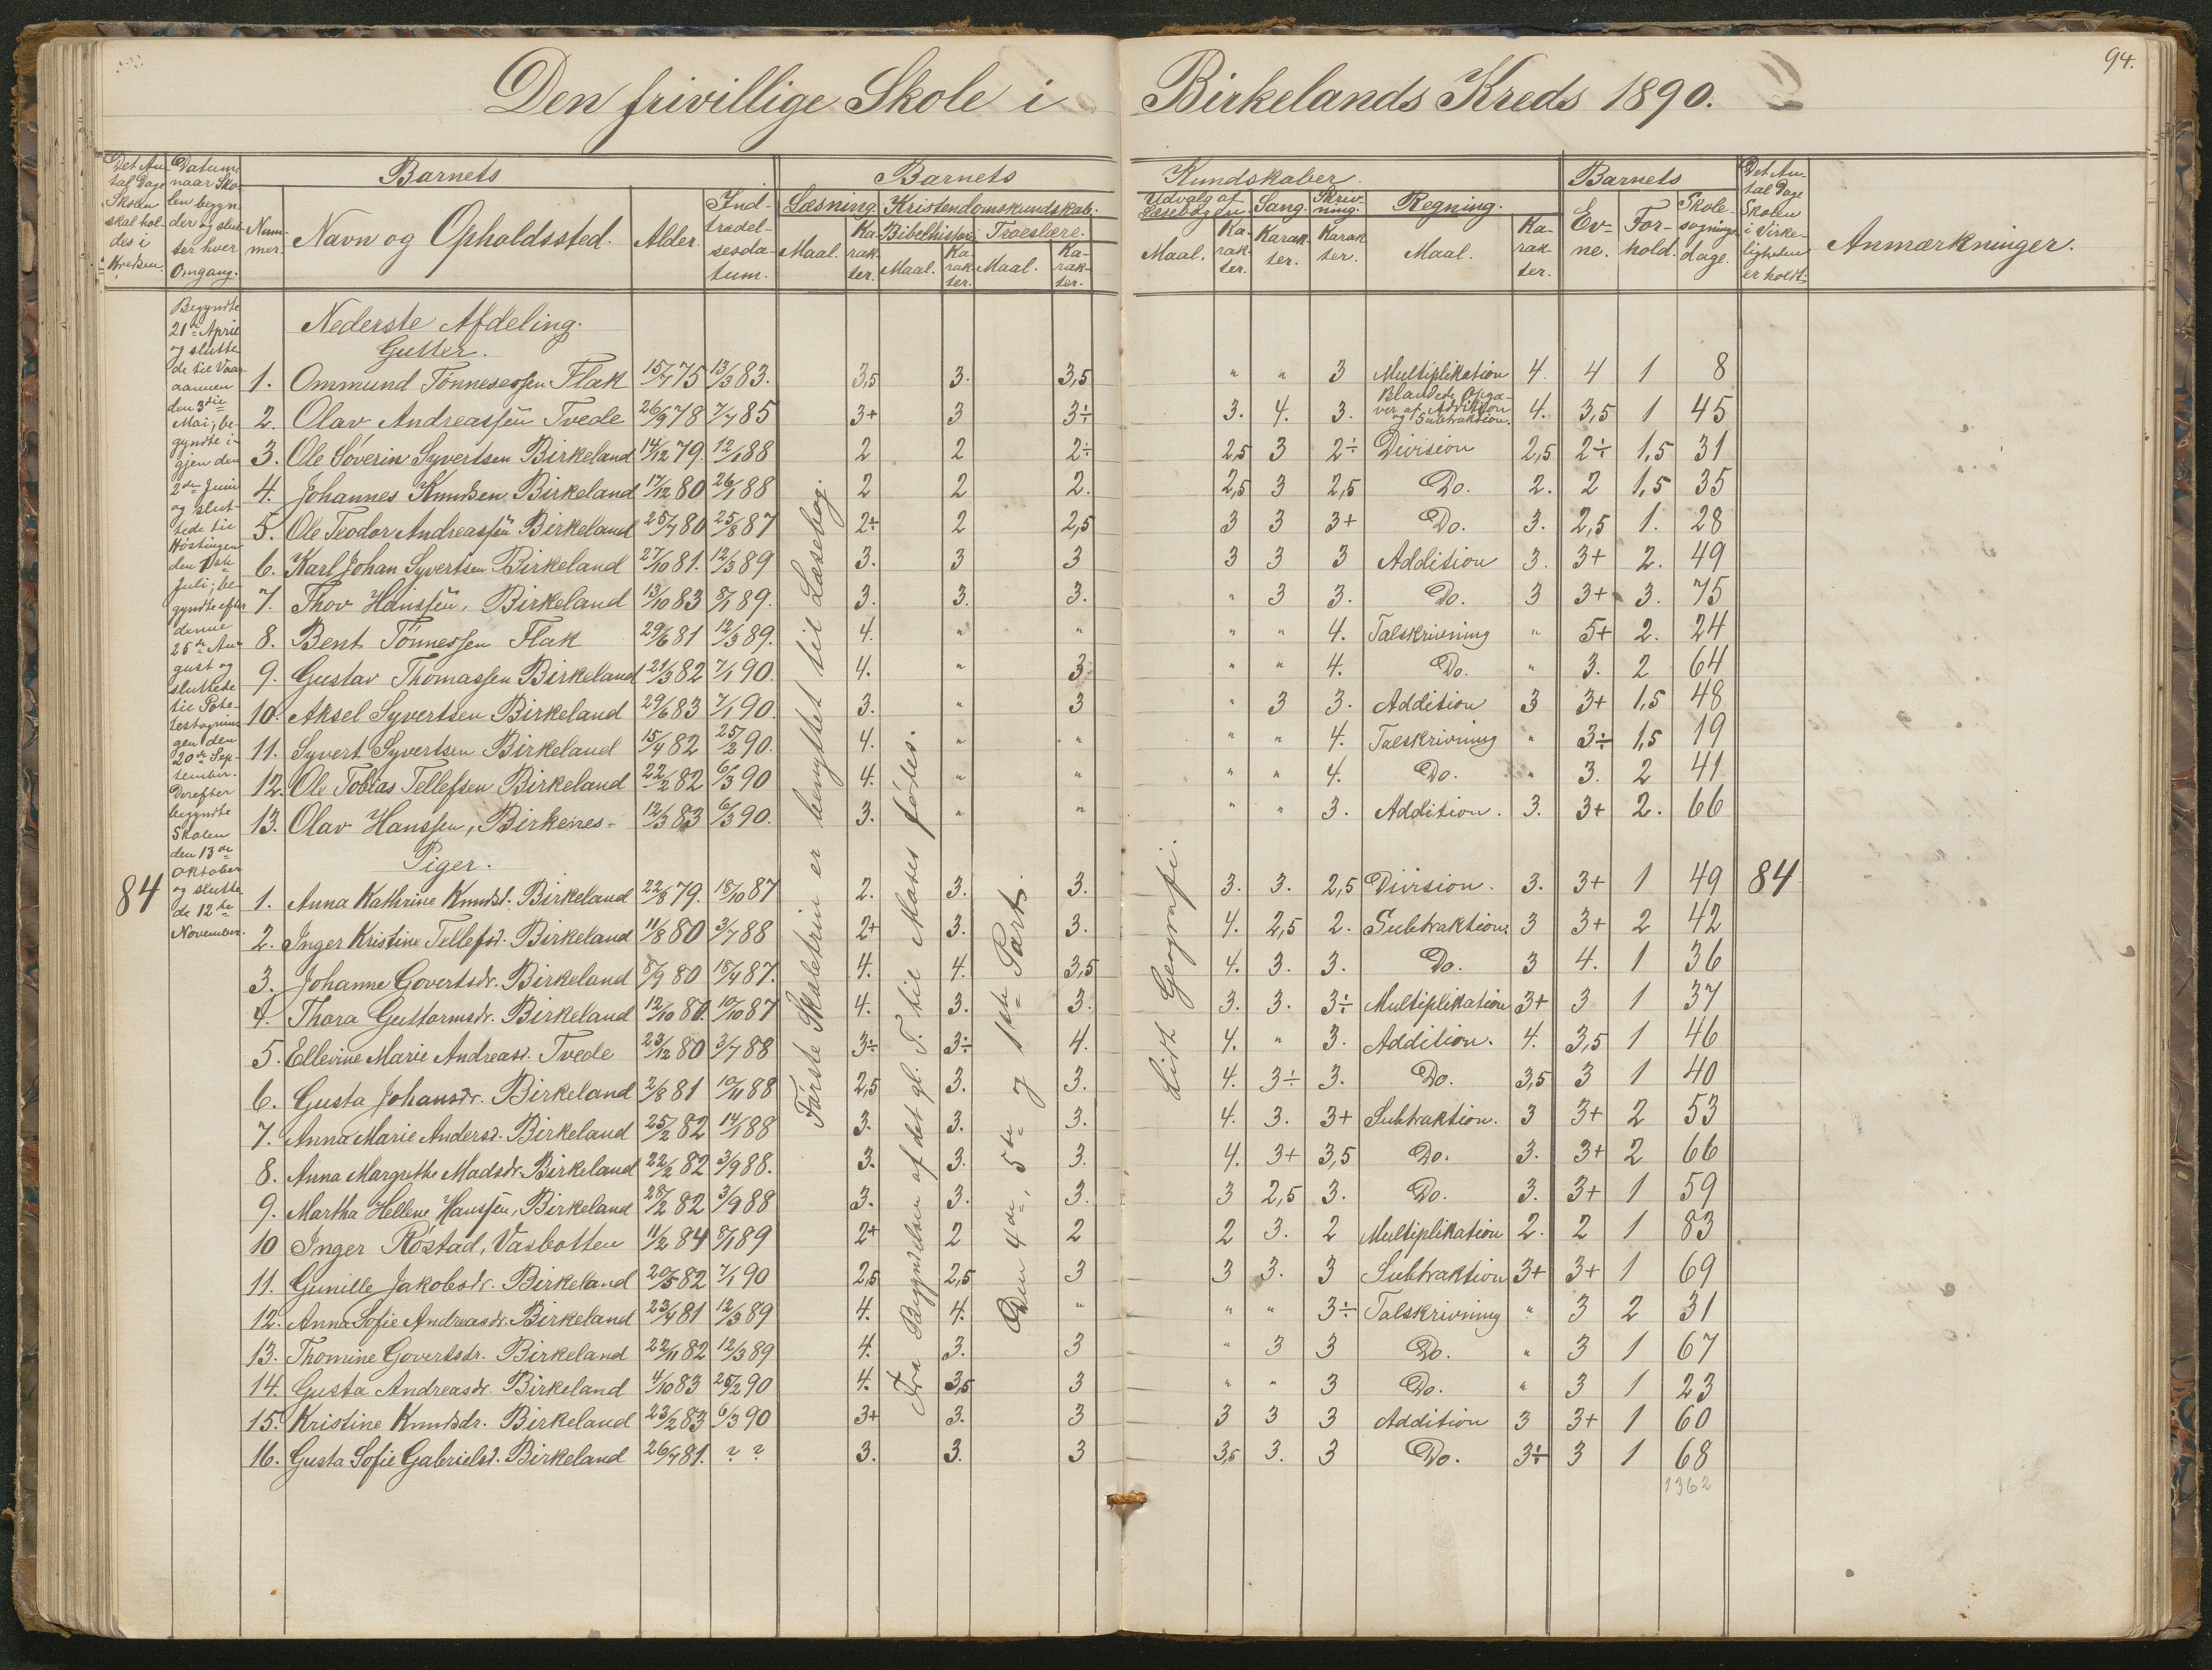 94.
Den frivillige Skole i Birkelands Kreds 1890.
Det An-
tal Dage
Skolen
skal hol-
des i
Kredsen.
Datum,
naar Sko-
len begyn-
der og slut-
ter hver
Omgang.
Barnets
Num-
mer.
Navn og Opholdssted.
Alder.
Ind-
trædel-
sesda-
tum.
Barnets Kundskaber.
Læsning.
Maal.
Ka-
rak-
ter.
Kristendomskundskab.
Bibelhistorie
Maal.
Ka-
rak-
ter.
Troeslære.
Maal.
Ka-
rak-
ter.
Udvalg af
Læsebogen
Maal.
Ka-
rak-
ter.
Sang.
Karak-
ter.
Skriv-
ning.
Karak-
ter.
Regning.
Maal.
Ka-
rak-
ter.
Barnets
Ev-
ne.
For-
hold.
Skole-
søgnings-
dage.
Det An-
tal Dage
Skolen
i Virke-
ligheden
er holdt.
Anmærkninger.
84
Begyndte
21de April
og slutte-
de til Vaar-
aannen
den 3die
Mai; be-
gyndte i-
gjen den
2den Juni
og slut-
tede til
Høstingen
den
Juli; be-
gyndte efter
denne
25de Au-
gust og
sluttede
til Pote-
tesoptagnin-
gen den
20de Sep-
tember.
Derefter
begyndte
Skolen
den 13de
Oktober
og slutte-
de 12te
November.
Nederste Afdeling.
Gutter.
1. Ommund Tönnesessen Flak 15/7 75 13/3 83. 3,5 3. 3,5 " " 3 Multiplikation 4. 4 1 8
2. Olav Andreassen Tvede 26/9 78 7/7 85 3+ 3 3÷ 3. 4. 3. Blandede Opga-
ver af Addition
og Subtraktion. 4. 3,5 1 45
3. Ole Söverin Syvertsen Birkeland 14/12 79. 12/1 88 2 2 2÷ 2,5 3 2÷ Division 2,5 2÷ 1,5 31
4. Johannes Knudsen Birkeland 17/12 80 26/1 88 2 2 2. 2,5 3 2,5 Do. 2. 2 1,5 35
5. Ole Teodor Andreassen Birkeland 25/7 80 25/8 87 2÷ 2 2,5 3 3 3+ Do. 3. 2,5 1. 28
6. Karl Johan Syvertsen Birkeland 27/10 81. 12/3 89 3. 3 3 3 3 3 Addition 3. 3+ 2. 49
7. Thov Hanssen, Birkeland 13/10 83 8/1 89. 3. 3. 3. " 3 3. Do. 3 3+ 3. 75
8. Bent Tönnessen Flak 29/6 81 12/3 89. 4. " " " " 4. Talskrivning " 5+ 2. 24
9. Gustav Thomassen Birkeland 21/3 82 7/1 90. 4. " 3. " " 4. Do. " 3. 2 64
10. Aksel Syvertsen Birkeland 29/6 83 7/1 90. 3. " 3 " 3 3. Addition 3 3+ 1,5 48
11. Syvert Syvertsen Birkeland 15/4 82 25/2 90. 4. " " " " 4. Talskrivning " 3÷ 1,5 19
12. Ole Tobias Tellefsen Birkeland 22/2 82 6/3 90 4. " " " " 4. Do. " 3. 2 41
13. Olav Hanssen, Birkenes 12/3 83 6/3 90. 3. " " " " 3. Addition. 3. 3+ 2. 66
Piger.
1. Anna Kathrine Knudsd. Birkeland 22/8 79. 18/10 87 2. 3. 3. 3. 3. 2,5 Division. 3. 3+ 1 49 84
2. Inger Kristine Tellefsd. Birkeland 11/8 80 3/7 88 2+ 3. 3. 4. 2,5 2. Subtraktion. 3 3+ 2 42
3. Johanne Govertsdr. Birkeland 8/9 80 18/4 87. 4. 4. 3,5 4. 3. 3. Do. 3 4. 1 36
4. Thora Guttormsdr. Birkeland 12/10 80. 10/10 87 4. 3. 3. 3. 3. 3÷ Multiplikation 3+ 3 1 37
5. Ellevine Marie Andreasd. Tvede 23/12 80 3/7 88 3÷ 3÷ 4. 4. " 3. Addition. 4. 3,5 1 46
6. Gusta Johansdr. Birkeland 2/8 81 10/4 88 2,5 3. 3. 4. 3÷ 3. Do. 3,5 3 1 40
7. Anna Marie Andersd. Birkeland 25/2 82 14/1 88 3. 3. 3. 4. 3. 3+ Subtraktion. 3 3+ 2 53
8. Anna Margrethe Madsdr. Birkeland 22/2 82 3/9 88. 3. 3. 3. 4. 3+ 3,5 Do. 3. 3+ 2 66
9. Martha Hellene Hanssen, Birkeland 28/2 82 3/9 88 3. 3. 3. 3 2,5 3. Do. 3. 3+ 1 59
10 Inger Röstad, Vasbotten 11/2 84 8/1 89 2+ 2 2 2 3. 2 Multiplikation 2. 2 1 83
11. Gunille Jakobsdr. Birkeland 20/5 82 7/1 90 2,5 2,5 3 3 3. 3 Subtraktion 3+ 3+ 1 69
12. Anna Sofie Andreasdr. Birkeland 23/4 81 12/3 89 4. 4. " " " 3÷ Talskrivning " 3 2 31
13. Thomine Govertsdr. Birkeland 22/11 82 12/3 89 4. 3. 3 " 3 3 Do. " 3 1 67
14. Gusta Andreasdr. Birkeland 4/10 83 25/2 90 4. 3,5 3 " " 3 Do. " 3 1 23
15. Kristine Knudsdr. Birkeland 23/2 83 6/3 90 3+ 3. 3 3 3 3 Addition 3 3+ 1 60
16. Gusta Sofie Gabrielsd. Birkeland 26/7 81. ? ? 3. 3. 3 3,5 3. 3 Do. 3÷ 3 1 68
1362
Første Skoletrin er benyttet til Læsebog.
Fra Begyndelsen af det gl. T. til Moses fødes.
Den 4de, 5te og 1ste Part.
Lidt Geografi.